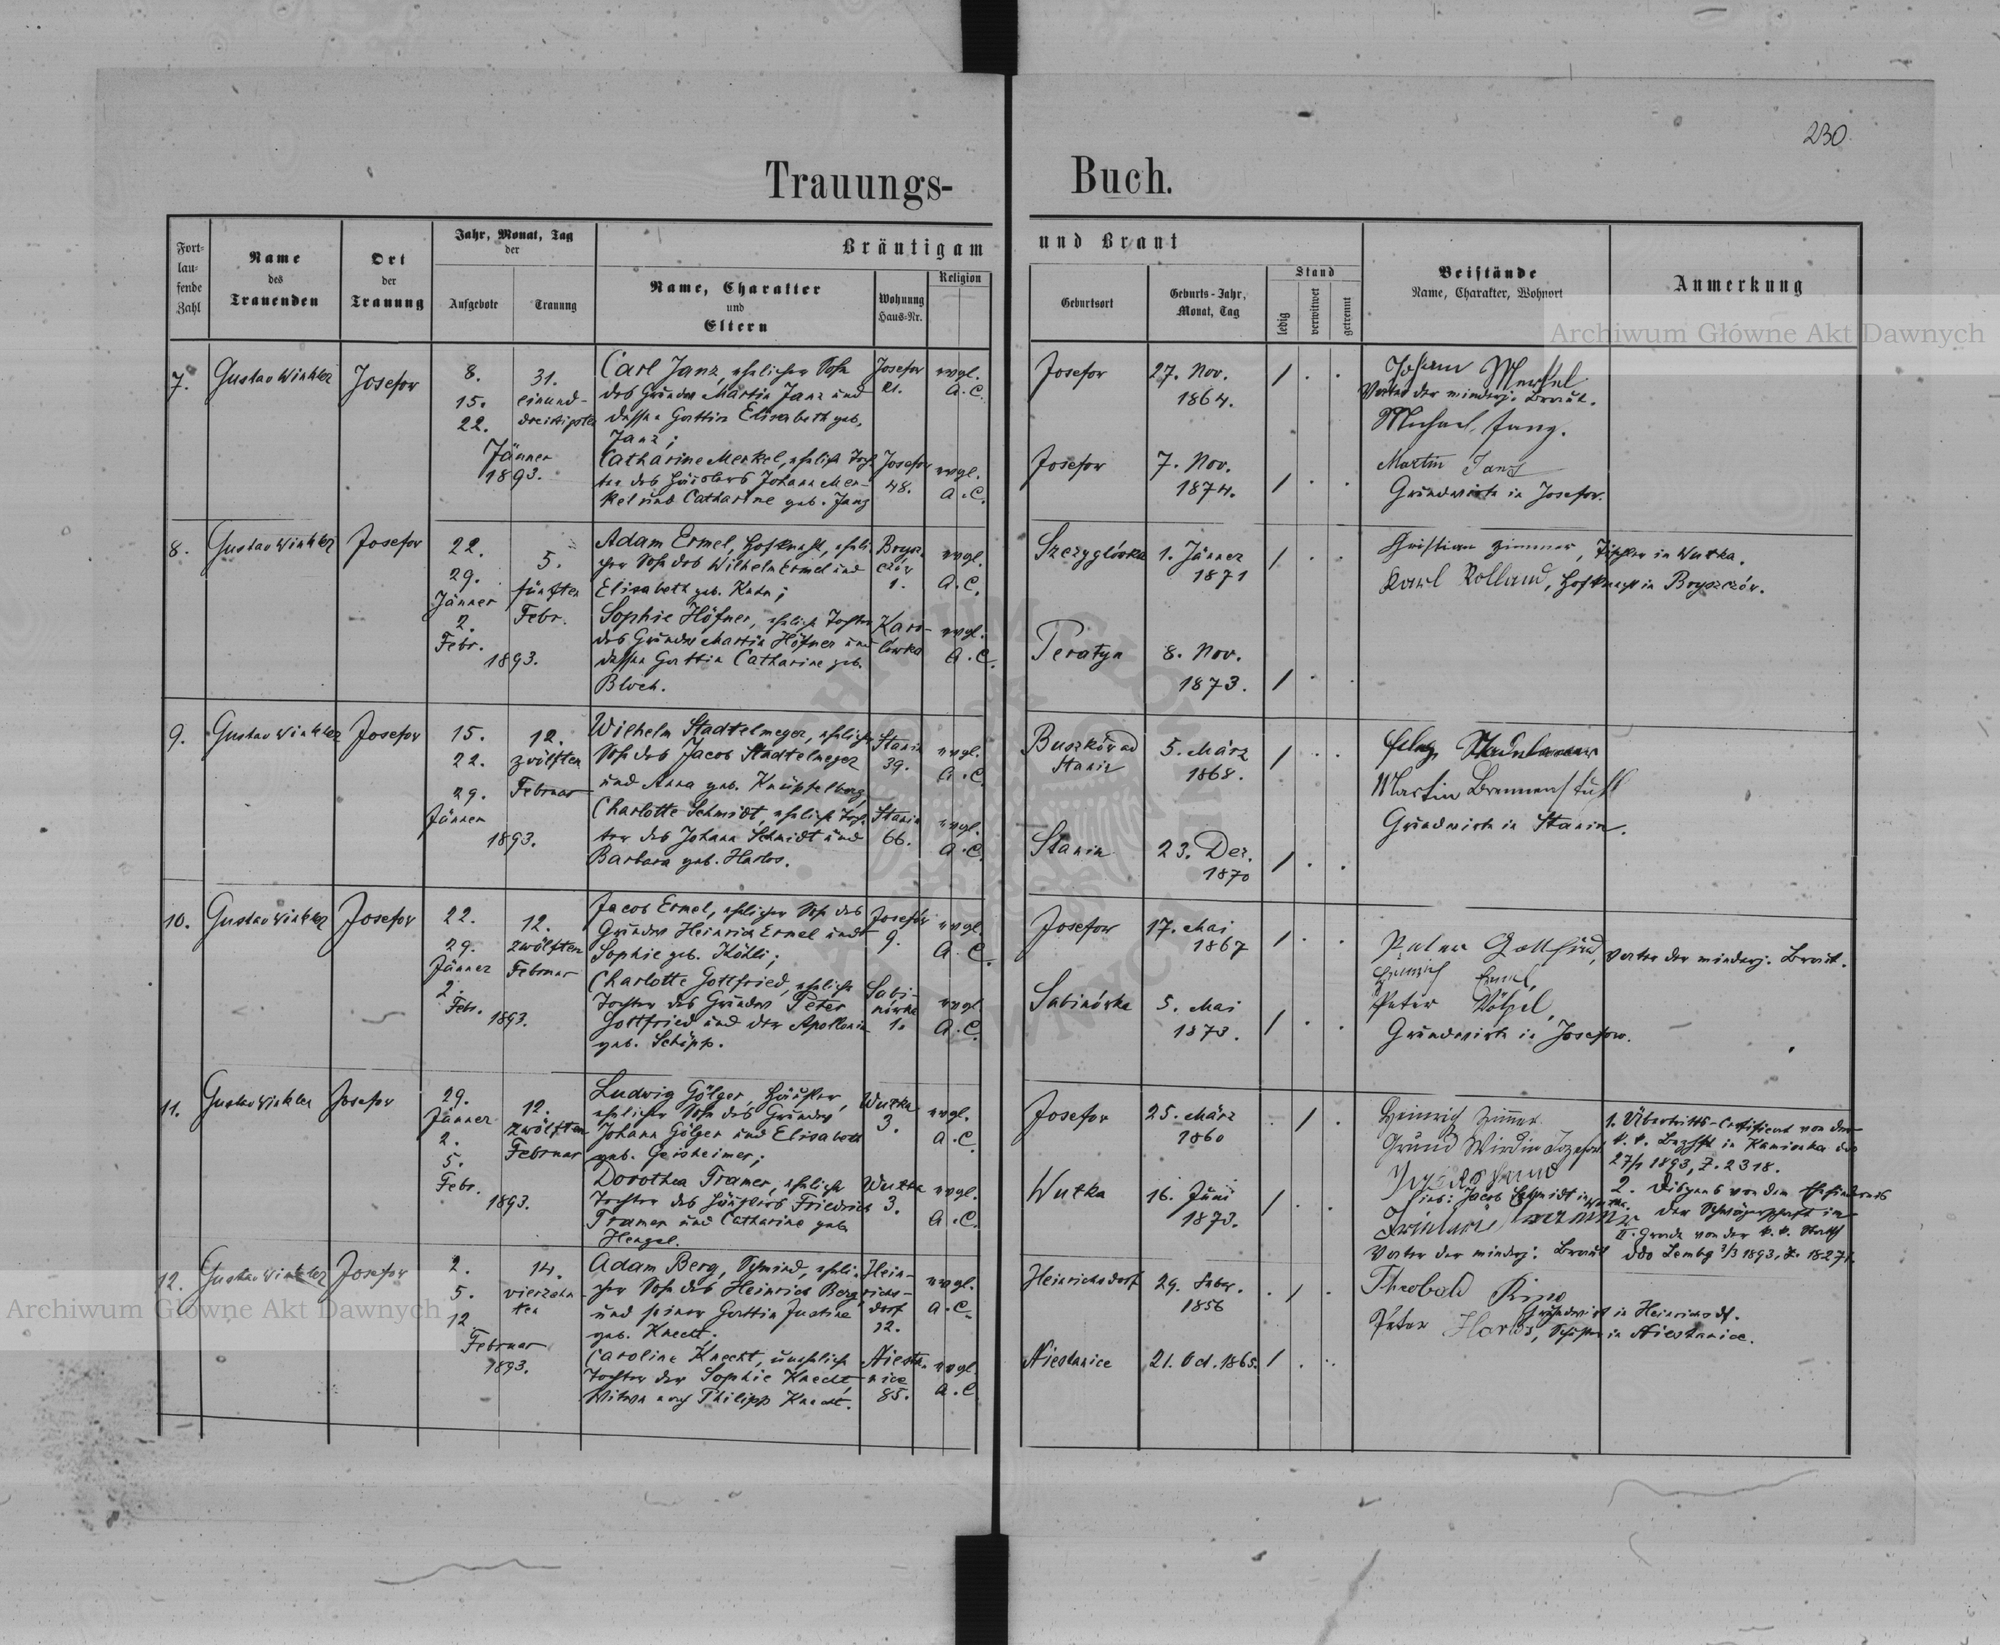 230
Trauungs- Buch.
Fort-
lau-
fende
Zahl
Name
des
Trauenden
Ort
der
Trauung
Jahr, Monat, Tag
der
Aufgebote
Trauung
Bräutigam und Braut
Name, Charakter
und
Eltern
Wohnung
Haus-Nr.
Religion
Geburtsort
Geburts-Jahr,
Monat, Tag
Stand
ledig
verwitwet
getrennt
Beistände
Name, Charakter, Wohnort
Anmerkung
Archiwum Główne Akt Dawnych
7.
Gustav Winkler
Josefow
8.
15.
22.
Jänner
1893.
31.
einund-
dreißigsten
Carl Janz, ehelicher Sohn
des Grunders Martin Janz und
dessen Gattin Elisabeth geb.
Janz;
Josefow
21.
evgl.
A.C.
Josefow
27. Nov.
1864.
Catharine Merkel, eheliche Toch-
ter des Häuslers Johann Mer-
kel und Catharine geb. Janz
Josefow
48.
evgl.
A.C.
Josefow
7. Nov.
1874.
Johann Merkel
Vater der minderj. Braut.
Michael Janz.
Martin Janz
Grundwirth in Josefow.
8.
Gustav Winkler
Josefow
22.
29.
Jänner
2.
Febr.
1893.
5.
fünften
Febr.
Adam Ermel, Hofknecht, eheli-
cher Sohn des Wilhelm Ermel und
Elisabeth geb. Kuhn;
Brysz-
czór
1.
evgl.
A.C.
Szczyglówka
1. Jänner
1871
Sophie Höfner, eheliche Tochter
des Grunders Martin Höfner und
dessen Gattin Catharine geb.
Bloch.
Karo-
lówka
evgl.
A.C.
Peratyn
8. Nov.
1873.
Christian Zimmer, Tischler in Wutka.
Karl Rolland, Hofknecht in Bryszczór.
9.
Gustav Winkler
Josefow
15.
22.
29.
Jänner
1893.
12.
zwölften
Februar
Wilhelm Stadtelmeyer, ehelicher
Sohn des Jacob Stadtelmeyer
und Anna geb. Knüpfelberg
Stanin
39.
evgl.
A.C.
Buszków ad
Stanin
5. März
1868.
Charlotte Schmidt, eheliche Toch-
ter des Johann Schmidt und
Barbara geb. Harlos.
Stanin
66.
evgl.
A.C.
Stanin
23. Dez.
1870
Martin Brennenstuhl
Grundwirth in Stanin.
10.
Gustav Winkler
Josefow
22.
29.
Jänner
2.
Febr.
1893.
12.
zwölften
Februar
Jacob Ermel, ehelicher Sohn des
Grunders Heinrich Ermel und
Sophie geb. Köhli;
Josefów
9.
evgl.
A.C.
Josefow
17. Mai
1867
Charlotte Gottfried, eheliche
Tochter des Grunders Peter
Gottfried und der Apollonia
geb. Schöpp.
Sabi-
nówka
1.
evgl.
A.C.
Sabinówka
5. Mai
1873.
Peter Gottfried, Vater der minderj. Braut.
Heinrich Ermel,
Peter
Grundwirth in Josefow.
11.
Gustav Winkler
Josefow
29.
Jänner
2.
5.
Febr.
1893.
12.
zwölften
Februar
Ludwig Gölger, Häusler,
ehelicher Sohn des Grunders
Johann Gölger und Elisabeth
geb. Geisheimer;
Wutka
3.
evgl.
A.C.
Josefow
25. März
1860
Dorothea Tramer, eheliche
Tochter des Häuslers Friedrich
Tramer und Catharine geb.
Hengel.
Wutka
3.
evgl.
A.C.
Wutka
16. Juni
1873.
Heinrich Zimmer
Grund Wird in Jozefow
Jacob Schmidt in Wutka.
Vater der minderj: Braut
1. Übertritts-Certificat von der
k. k. Bezhpt in Kamionka ddo
27/1 1893, Z. 2318.
2. Dispens von dem Ehehinderniß
der Schwägerschaft im
II. Grade von der k. k. Statth
ddo Lembg 2/3 1893, Z. 18271.
12.
Gustav Winkler
Josefow
2.
5.
12.
Februar
1893.
14.
vierzehn-
ten
Adam Berg, Schmied, eheli-
cher Sohn des Heinrich Berg
und seiner Gattin Justine
geb. Knecht;
Hein-
richs-
dorf
12.
evgl.
A.C.
Heinrichsdorf
29.
1856
Caroline Knecht, uneheliche
Tochter der Sophie Knecht,
Witwe nach Philipp Knecht.
Niesta-
nice
85.
evgl.
A.C.
Niestanice
21. Oct. 1865.
Theobald Ring
Grundwirth in Heinrichsdf.
Peter Harlos, Schuster in Niestanice.
Archiwum Główne Akt Dawnych